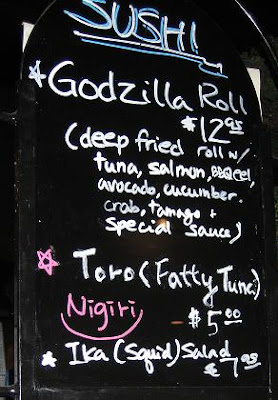 SUSHI
Godzilla Roll
$12.95
(deep fried roll w/
tuna, salmon, BBQ eel,
avocado, cucumber.
crab, tamago +
special sauce)
Toro (Fatty Tuna)
Nigiri
$5.00
Ika (Squid) Salad
$7.95